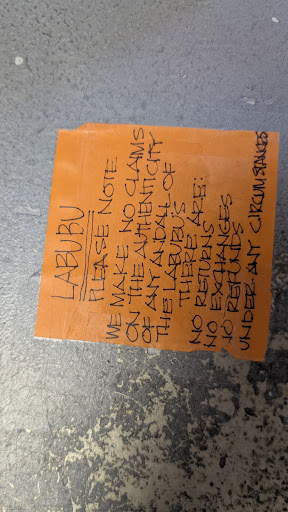 LABUBU
PLEASE NOTE
WE MAKE NO CLAIMS
ON THE AUTHENTICITY
OF ANY AND ALL OF
THE LABUBUS
THERE ARE:
NO RETURNS
NO EXCHANGES
NO REFUNDS
UNDER ANY CIRCUMSTANCES